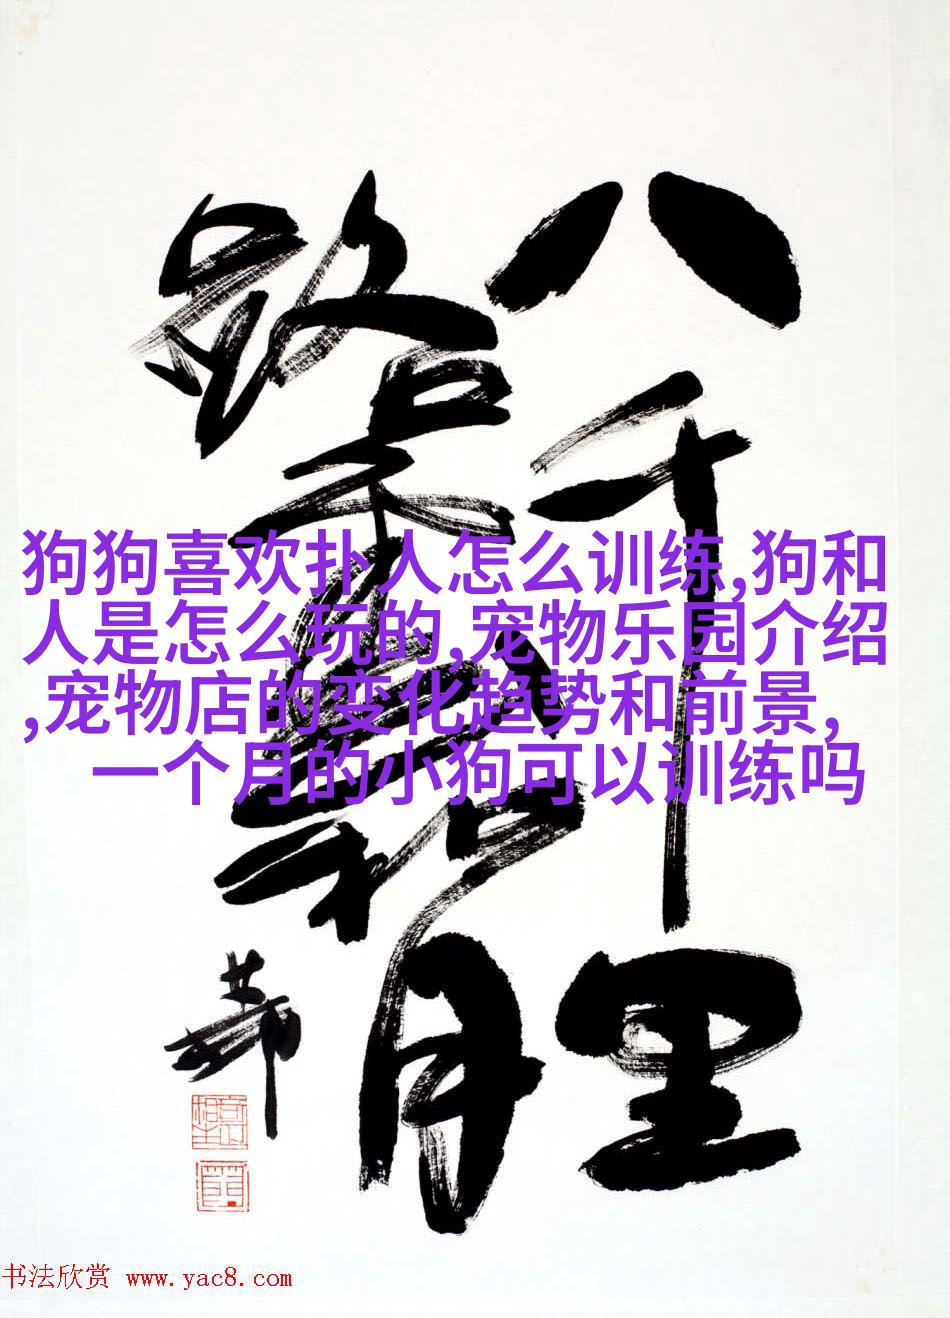 八千里
路云和月
狗狗喜欢扑人怎么训练,狗和
人是怎么玩的,宠物乐园介绍
,宠物店的变化趋势和前景,
一个月的小狗可以训练吗
书法欣赏 www.yac8.com